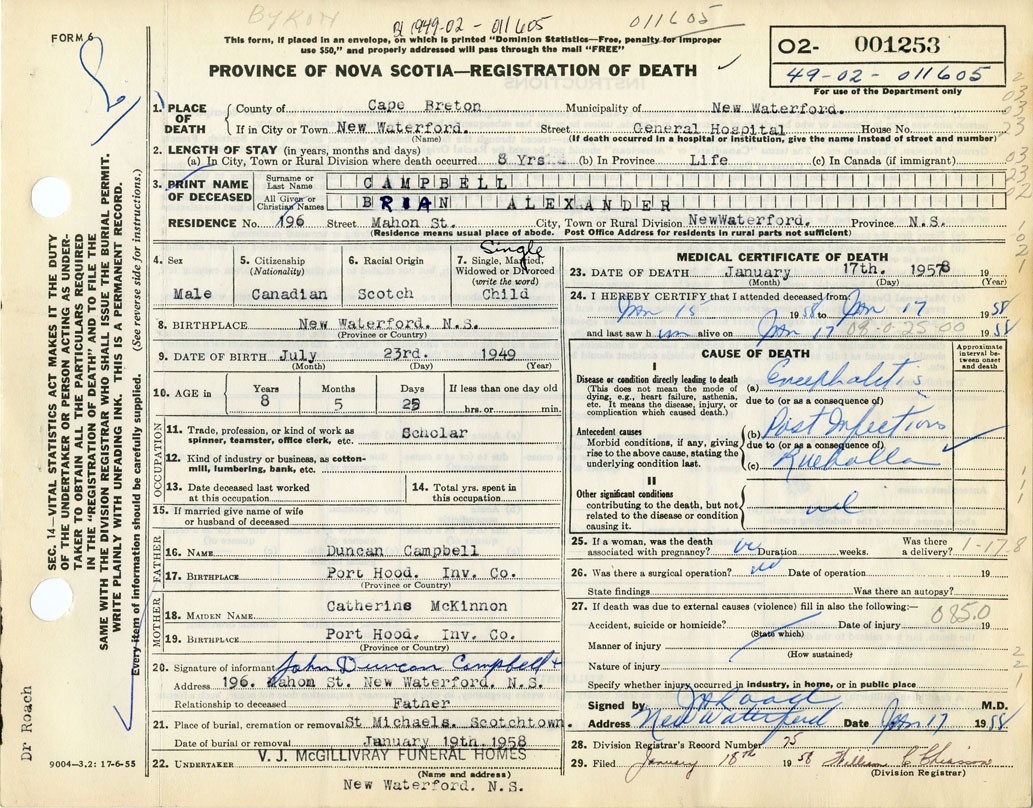 BYRON
RJ 1949-02-011605
011605
FORM 6
This form, if placed in an envelope, on which is printed "Dominion Statistics—Free, penalty for improper
use $50," and properly addressed will pass through the mail "FREE"
02- 001253
49-02-011605
For use of the Department only
PROVINCE OF NOVA SCOTIA—REGISTRATION OF DEATH
1. PLACE OF DEATH County of Cape Breton Municipality of New Waterford.
If in City or Town New Waterford. Street General Hospital House No.
(Name) (If death occurred in a hospital or institution, give the name instead of street and number)
2. LENGTH OF STAY (in years, months and days)
(a) In City, Town or Rural Division where death occurred 8 Yrs. (b) In Province Life (c) In Canada (if immigrant)
3. PRINT NAME OF DECEASED Surname or Last Name CAMPBELL
All Given or Christian Names BRIAN ALEXANDER
RESIDENCE No. 196 Street Mahon St. City, Town or Rural Division NewWaterford. Province N.S.
(Residence means usual place of abode. Post Office Address for residents in rural parts not sufficient)
4. Sex Male
5. Citizenship (Nationality) Canadian
6. Racial Origin Scotch
7. Single, Married, Widowed or Divorced (write the word) Single Child
8. BIRTHPLACE New Waterford. N.S.
(Province or Country)
9. DATE OF BIRTH July 23rd. 1949
(Month) (Day) (Year)
10. AGE in Years 8 Months 5 Days 25 If less than one day old hrs. or min.
OCCUPATION
11. Trade, profession, or kind of work as spinner, teamster, office clerk, etc. Scholar
12. Kind of industry or business, as cotton-mill, lumbering, bank, etc.
13. Date deceased last worked at this occupation
14. Total yrs. spent in this occupation
15. If married give name of wife or husband of deceased
FATHER
16. NAME Duncan Campbell
17. BIRTHPLACE Port Hood. Inv. Co.
(Province or Country)
MOTHER
18. MAIDEN NAME Catherine McKinnon
19. BIRTHPLACE Port Hood. Inv. Co.
(Province or Country)
20. Signature of informant John Duncan Campbell
Address 196. Mahom St. New Waterford. N.S.
Relationship to deceased Father
21. Place of burial, cremation or removal St Michaels. Scotchtown.
Date of burial or removal January 19th 1958
22. UNDERTAKER V. J. McGILLIVRAY FUNERAL HOMES
(Name and address)
New Waterford. N.S.
MEDICAL CERTIFICATE OF DEATH
23. DATE OF DEATH January 17th. 1958 19
(Month) (Day) (Year)
24. I HEREBY CERTIFY that I attended deceased from:
Jan 15 1958 to Jan 17 1958
and last saw him alive on Jan 17 1958
09-0-25-00
CAUSE OF DEATH
Approximate interval between onset and death
I
Disease or condition directly leading to death
(This does not mean the mode of dying, e.g., heart failure, asthenia, etc. It means the disease, injury, or complication which caused death.)
(a) Encephalitis
due to (or as a consequence of)
Antecedent causes
Morbid conditions, if any, giving rise to the above cause, stating the underlying condition last.
(b) Post Infectious
due to (or as a consequence of)
(c) Ruebella
II
Other significant conditions
contributing to the death, but not related to the disease or condition causing it.
nil
25. If a woman, was the death associated with pregnancy? Duration weeks. Was there a delivery?
1-17.8
26. Was there a surgical operation? no Date of operation 19
State findings Was there an autopsy?
27. If death was due to external causes (violence) fill in also the following:—
085.0
Accident, suicide or homicide? Date of injury 19
(State which)
Manner of injury
(How sustained)
Nature of injury
Specify whether injury occurred in industry, in home, or in public place
Signed by J Roach M.D.
Address New Waterford Date Jan 17 1958
28. Division Registrar's Record Number 75
29. Filed January 18th 1958 William C Chiasson
(Division Registrar)
SEC. 14—VITAL STATISTICS ACT MAKES IT THE DUTY
OF THE UNDERTAKER OR PERSON ACTING AS UNDER-
TAKER TO OBTAIN ALL THE PARTICULARS REQUIRED
IN THE "REGISTRATION OF DEATH" AND TO FILE THE
SAME WITH THE DIVISION REGISTRAR WHO SHALL ISSUE THE BURIAL PERMIT.
WRITE PLAINLY WITH UNFADING INK. THIS IS A PERMANENT RECORD.
Every item of information should be carefully supplied. (See reverse side for instructions.)
Dr Roach
9004—3.2: 17-6-55